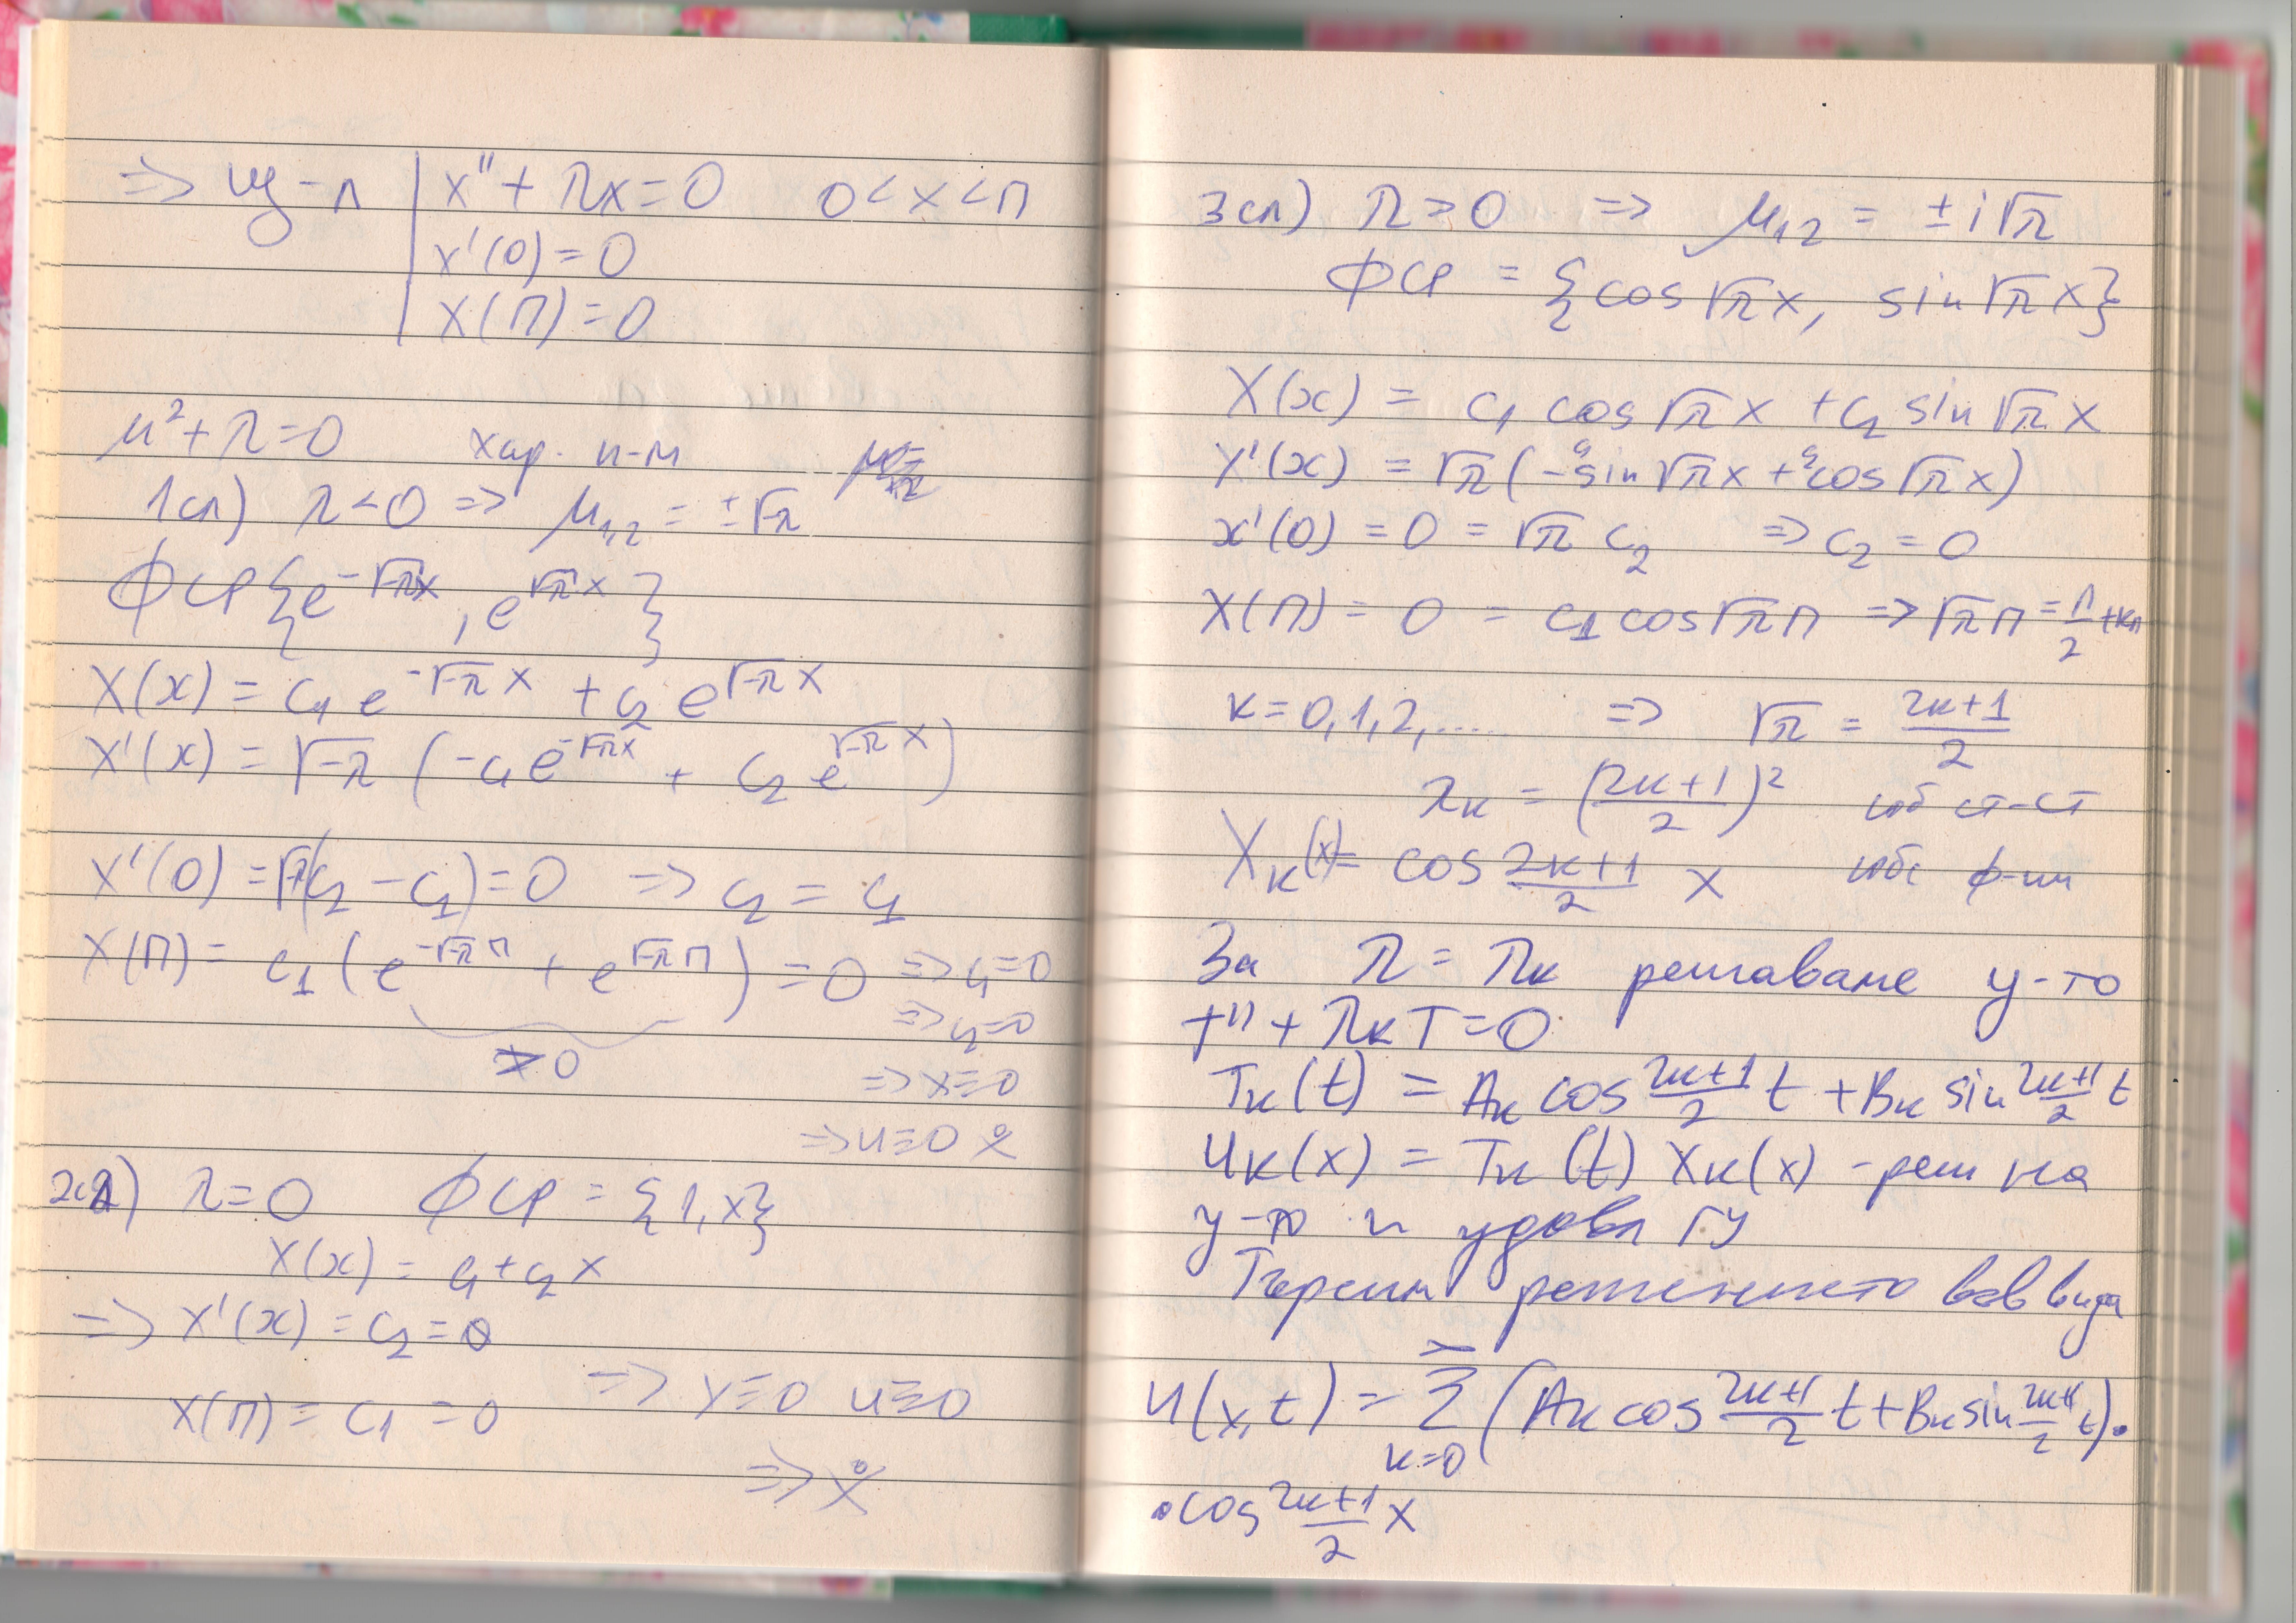 => ЩЛ | X'' + λX = 0 0 < x < π
X'(0) = 0
X(π) = 0
μ² + λ = 0 хар. п-м
1сл) λ < 0 => μ₁,₂ = ±√-λ
ФСР {e^(-√-λ x), e^(√-λ x)}
X(x) = c₁ e^(-√-λ x) + c₂ e^(√-λ x)
X'(x) = √-λ (-c₁ e^(-√-λ x) + c₂ e^(√-λ x))
X'(0) = √-λ (c₂ - c₁) = 0 => c₂ = c₁
X(π) = c₁ (e^(-√-λ π) + e^(√-λ π)) = 0 => c₁ = 0
=> c₂ = 0
≠ 0
=> X ≡ 0
=> u ≡ 0
2сл) λ = 0 ФСР = {1, x}
X(x) = c₁ + c₂ x
=> X'(x) = c₂ = 0
X(π) = c₁ = 0 => X ≡ 0 u ≡ 0
=>
3сл) λ > 0 => μ₁,₂ = ± i√λ
ФСР = {cos √λ x, sin √λ x}
X(x) = c₁ cos √λ x + c₂ sin √λ x
X'(x) = √λ (-c₁ sin √λ x + c₂ cos √λ x)
X'(0) = 0 = √λ c₂ => c₂ = 0
X(π) = 0 = c₁ cos √λ π => √λ π = π/2 + kπ
k = 0, 1, 2, ..... => √λ = (2k+1)/2
λₖ = ((2k+1)/2)² соб ст-ст
Xₖ(x) = cos (2k+1)/2 x собс ф-ии
За λ = λₖ решаваме у-то
T'' + λₖ T = 0
Tₖ(t) = Aₖ cos (2k+1)/2 t + Bₖ sin (2k+1)/2 t
uₖ(x) = Tₖ(t) Xₖ(x) - реш на
у-то и удовл ГУ
Търсим решението във вида
u(x,t) = ∑_(k=0)^∞ (Aₖ cos (2k+1)/2 t + Bₖ sin (2k+1)/2 t) .
. cos (2k+1)/2 x